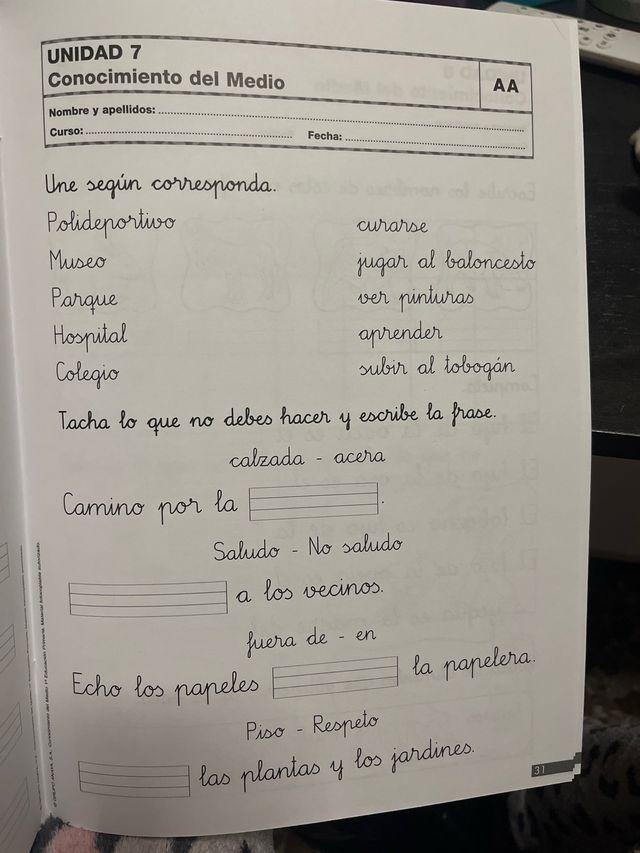 UNIDAD 7
Conocimiento del Medio
AA
Nombre y apellidos:
Curso: Fecha:
Une según corresponda.
Polideportivo curarse
Museo jugar al baloncesto
Parque ver pinturas
Hospital aprender
Colegio subir al tobogán
Tacha lo que no debes hacer y escribe la frase.
calzada - acera
Camino por la .
Saludo - No saludo
a los vecinos.
fuera de - en
Echo los papeles la papelera.
Piso - Respeto
las plantas y los jardines.
31